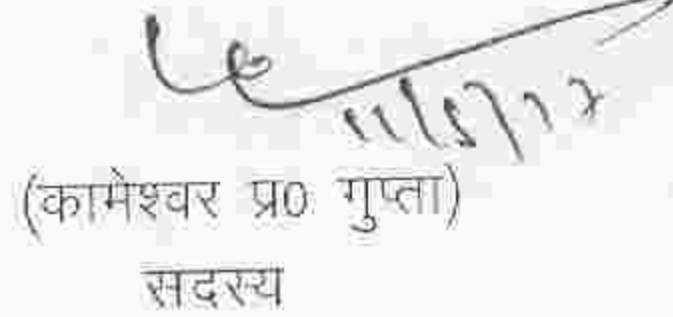 11/5/17
(कामेश्वर प्र0 गुप्ता)
सदस्य